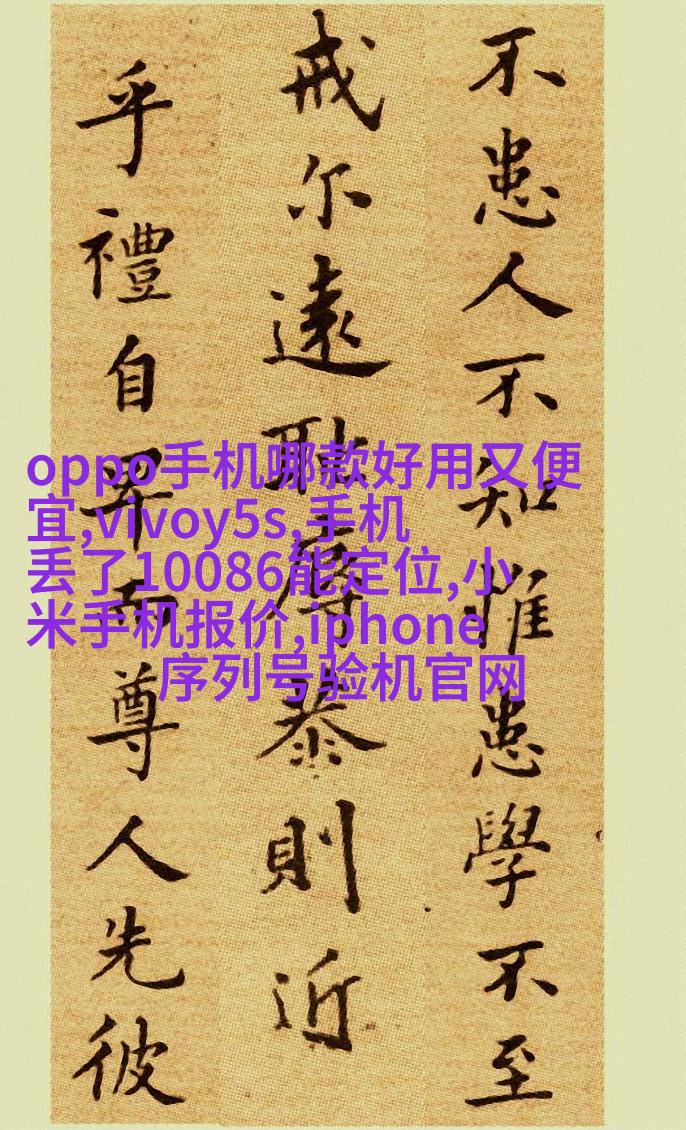 不患人不知惟患學不至
戒尔遠耻辱恭則近
乎禮自卑而尊人先彼
oppo手机哪款好用又便
宜,vivoy5s,手机
丢了10086能定位,小
米手机报价,iphone
序列号验机官网